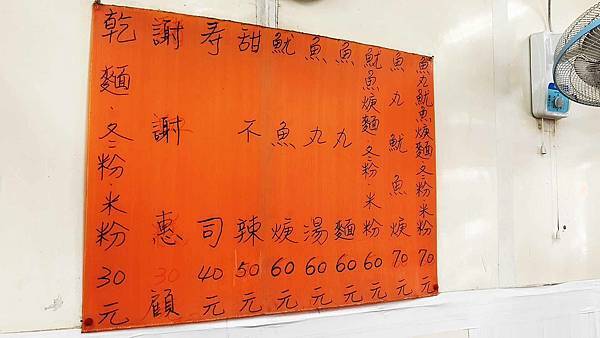 魚丸魷魚焿麵冬粉·米粉70元
魚丸魷魚焿70元
魷魚焿麵·冬粉·米粉60元
魚丸麵60元
魚丸湯60元
魷魚焿60元
甜不辣50元
寿司40元
謝謝惠顧
乾麵·冬粉·米粉30元